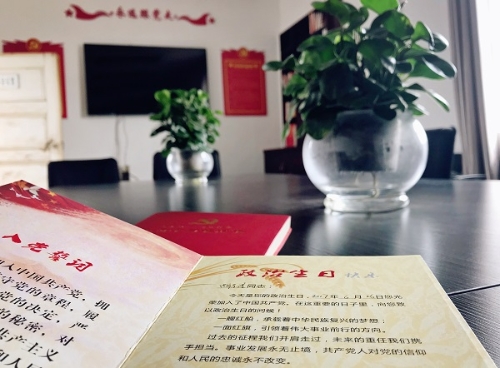 永远跟党走
入党誓词
入中国共产党，拥
守党的章程，履
党的决定，严
的秘密，对
共产主义
和人民
政治生日
同志：
今天是您的政治生日，
来加入了中国共产党。在这重要的日子里，向您致
以政治生日的问候！
一艘红船，承载着中华民族复兴的梦想；
一面红旗，引领着伟大事业前行的方向。
过去的征程我们并肩走过，未来的重任我们携
手担当。事业发展永无止境，共产党人对党的信仰
和人民的忠诚永不改变。